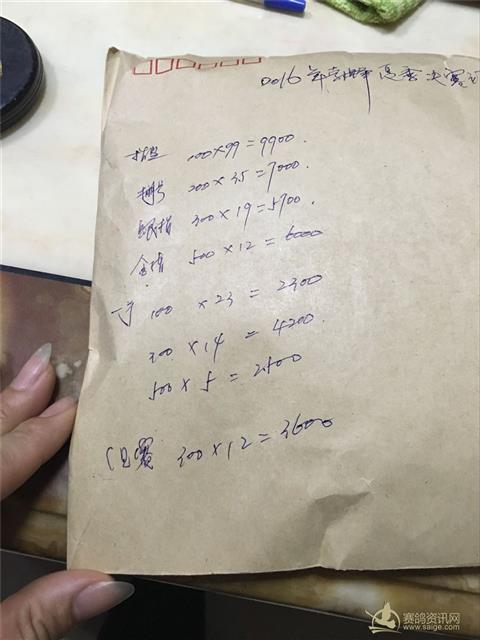 2016年 季决赛
100×99=9900.
200×35=7000.
银指 300×19=5700.
金指 500×12=6000
100 ×23 = 2300
300×14 =4200.
500×5=2500
赛 300×12=3600
赛鸽资讯网
www.saige.com